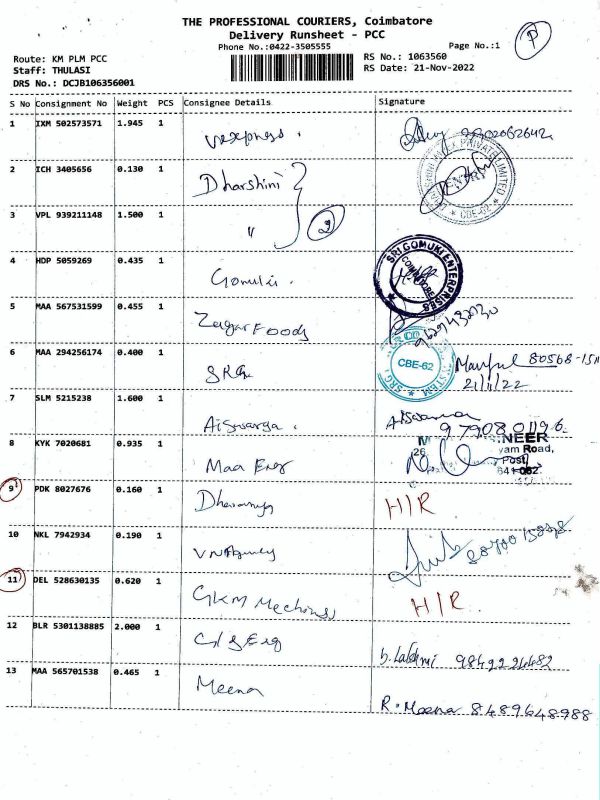 THE PROFESSIONAL COURIERS, Coimbatore
Delivery Runsheet - PCC
Phone No.:0422-3505555
Page No.:1
P
Route: KM PLM PCC
Staff: THULASI
DRS No.: DCJB106356001
RS No.: 1063560
RS Date: 21-Nov-2022
S No Consignment No Weight PCS Consignee Details Signature
1 IXM 502573571 1.945 1
2 ICH 3405656 0.130 1 Dharshini
CBE-62
3 VPL 939211148 1.500 1 "
2
4 HDP 5059269 0.435 1
SRI GOMUKI ENTERPRISES
COIMBATORE
5 MAA 567531599 0.455 1 Zagar Foods
9629432730
6 MAA 294256174 0.400 1
CBE-62
80568-151
21/11/22
7 SLM 5215238 1.600 1 Aiswarya. Aiswarya
9790801196
8 KYK 7020681 0.935 1 Maa Eng
NEER
yam Road,
Post,
9 PDK 8027676 0.160 1 H/R
10 NKL 7942934 0.190 1 VN Agency
11 DEL 528630135 0.620 1 GKM H/R
12 BLR 5301138885 2.000 1 b. Lakshmi 9842224482
13 MAA 565701538 0.465 1 Meena R. Meena 8489648988